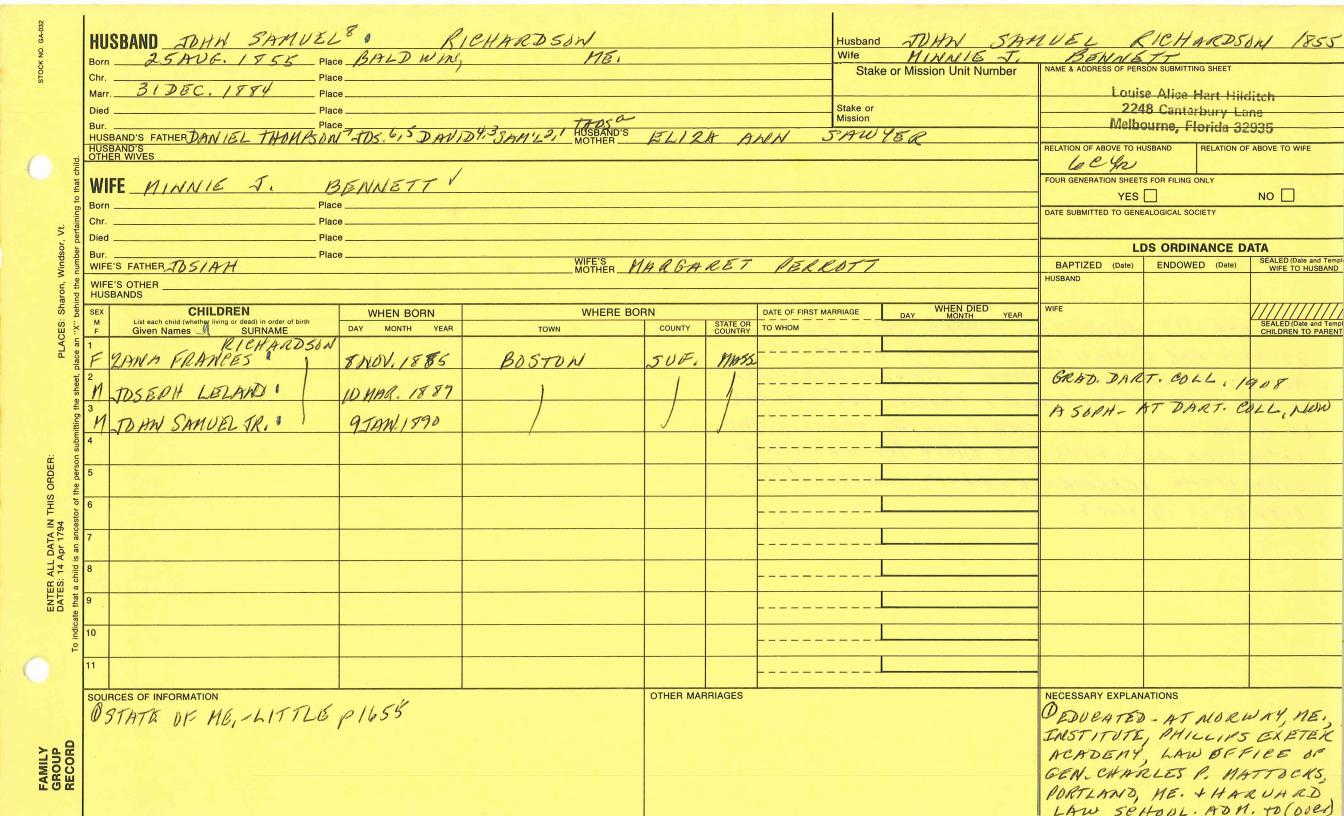 STOCK NO. GA-032
HUSBAND JOHN SAMUEL⁸ RICHARDSON
Born 25 AUG. 1855 Place BALDWIN, ME.
Chr. Place
Marr. 31 DEC. 1884 Place
Died Place
Bur. Place
THOSᵃ
HUSBAND'S FATHER DANIEL THOMPSON⁷ JOS.⁶,⁵ DAVID⁴,³ SAM'L²,¹ HUSBAND'S MOTHER ELIZA ANN SAWYER
HUSBAND'S OTHER WIVES
WIFE MINNIE J. BENNETT ✓
Born Place
Chr. Place
Died Place
Bur. Place
WIFE'S FATHER JOSIAH WIFE'S MOTHER MARGARET PERROTT
WIFE'S OTHER HUSBANDS
Husband JOHN SAMUEL RICHARDSON 1855
Wife MINNIE J. BENNETT
Stake or Mission Unit Number
Stake or Mission
NAME & ADDRESS OF PERSON SUBMITTING SHEET
Louise Alice Hart Hilditch
2248 Cantarbury Lane
Melbourne, Florida 32935
RELATION OF ABOVE TO HUSBAND RELATION OF ABOVE TO WIFE
FOUR GENERATION SHEETS FOR FILING ONLY
YES NO
DATE SUBMITTED TO GENEALOGICAL SOCIETY
LDS ORDINANCE DATA
BAPTIZED (Date) ENDOWED (Date) SEALED (Date and Templ
WIFE TO HUSBAND
HUSBAND
WIFE
SEALED (Date and Templ
CHILDREN TO PARENT
SEX M F CHILDREN WHEN BORN WHERE BORN DATE OF FIRST MARRIAGE WHEN DIED
List each child (whether living or dead) in order of birth
Given Names SURNAME DAY MONTH YEAR TOWN COUNTY STATE OR COUNTRY TO WHOM DAY MONTH YEAR
RICHARDSON
1 F FRANCES 8 NOV. 1885 BOSTON SUF. MASS
2 M JOSEPH LELAND 10 MAR. 1887 GRAD. DART. COLL. 1908
3 M JOHN SAMUEL JR. 9 JAN. 1890 A SOPH- AT DART. COLL, NOW
4
5
6
7
8
9
10
11
SOURCES OF INFORMATION
① STATE OF ME,-LITTLE p1655
OTHER MARRIAGES
NECESSARY EXPLANATIONS
① EDUCATED - AT NORWAY, ME.,
INSTITUTE, PHILLIPS EXETER
ACADEMY, LAW OFFICE OF
GEN. CHARLES P. MATTOCKS,
PORTLAND, ME. + HARVARD
LAW SCHOOL. ADM. TO (over)
PLACES: Sharon, Windsor, Vt.
ENTER ALL DATA IN THIS ORDER:
DATES: 14 Apr 1794
To indicate that a child is an ancestor of the person submitting the sheet, place an "X" behind the number pertaining to that child.
FAMILY
GROUP
RECORD